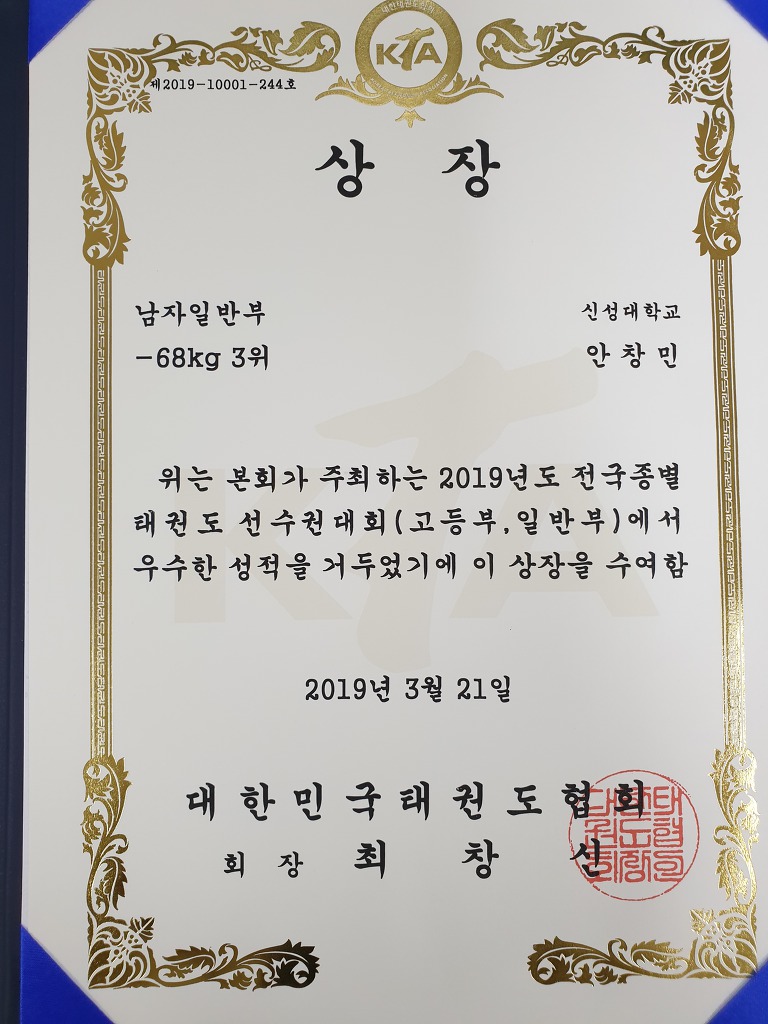 대한태권도협회
KTA
제2019-10001-244호
상 장
남자일반부
신성대학교
-68kg 3위
안 창 민
위는 본회가 주최하는 2019년도 전국종별
태권도 선수권대회(고등부,일반부)에서
우수한 성적을 거두었기에 이 상장을 수여함
2019년 3월 21일
대한민국태권도협회
회 장 최 창 신